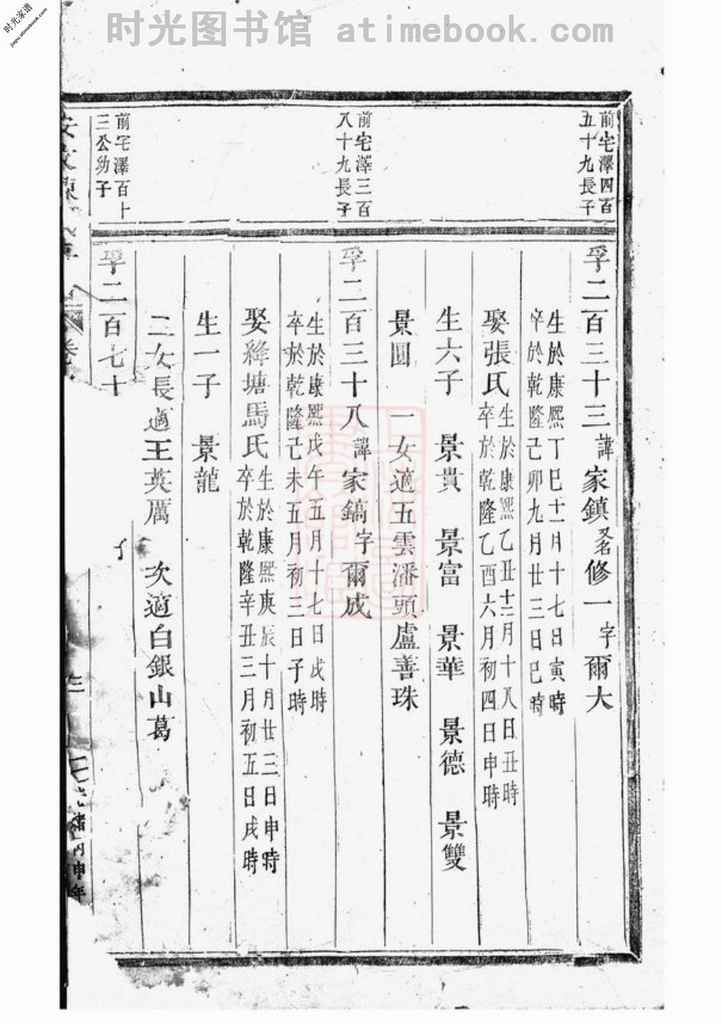 时光图书馆 atimebook.com
时光家谱
jiapu.atimebook.com
前宅澤四百
五十九長子
孚二百三十三諱家鎮又名修一字爾大
生於康熙丁巳十一月十七日寅時
卒於乾隆己卯九月廿三日巳時
娶張氏生於康熙乙丑十二月十八日丑時
卒於乾隆乙酉六月初四日申時
生六子 景貴 景富 景華 景德 景雙
景圓 一女適五雲潘頭盧善珠
前宅澤三百
八十九長子
孚二百三十八諱家鎬字爾成
生於康熙戊午五月十七日戌時
卒於乾隆己未五月初三日子時
娶絳塘馬氏生於康熙庚辰十月廿三日申時
卒於乾隆辛丑三月初五日戌時
生一子 景龍
二女長適王英厲 次適白銀山葛
前宅澤百十
三公幼子
孚二百七十
光緒丙申年